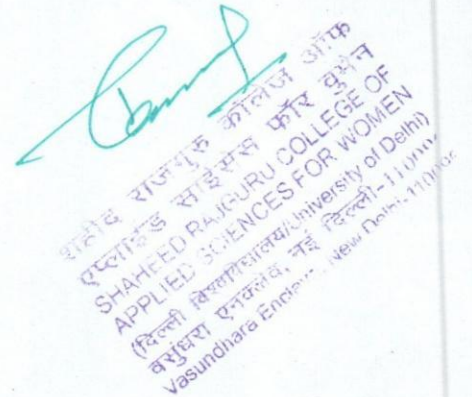 शहीद राजगुरु कॉलेज ऑफ
एप्लाईड साइंसस फॉर वुमेन
SHAHEED RAJGURU COLLEGE OF
APPLIED SCIENCES FOR WOMEN
(दिल्ली विश्वविद्यालय/University of Delhi)
वसुंधरा एनक्लेव, नई दिल्ली-11000
Vasundhara Enclave, New Delhi-11000